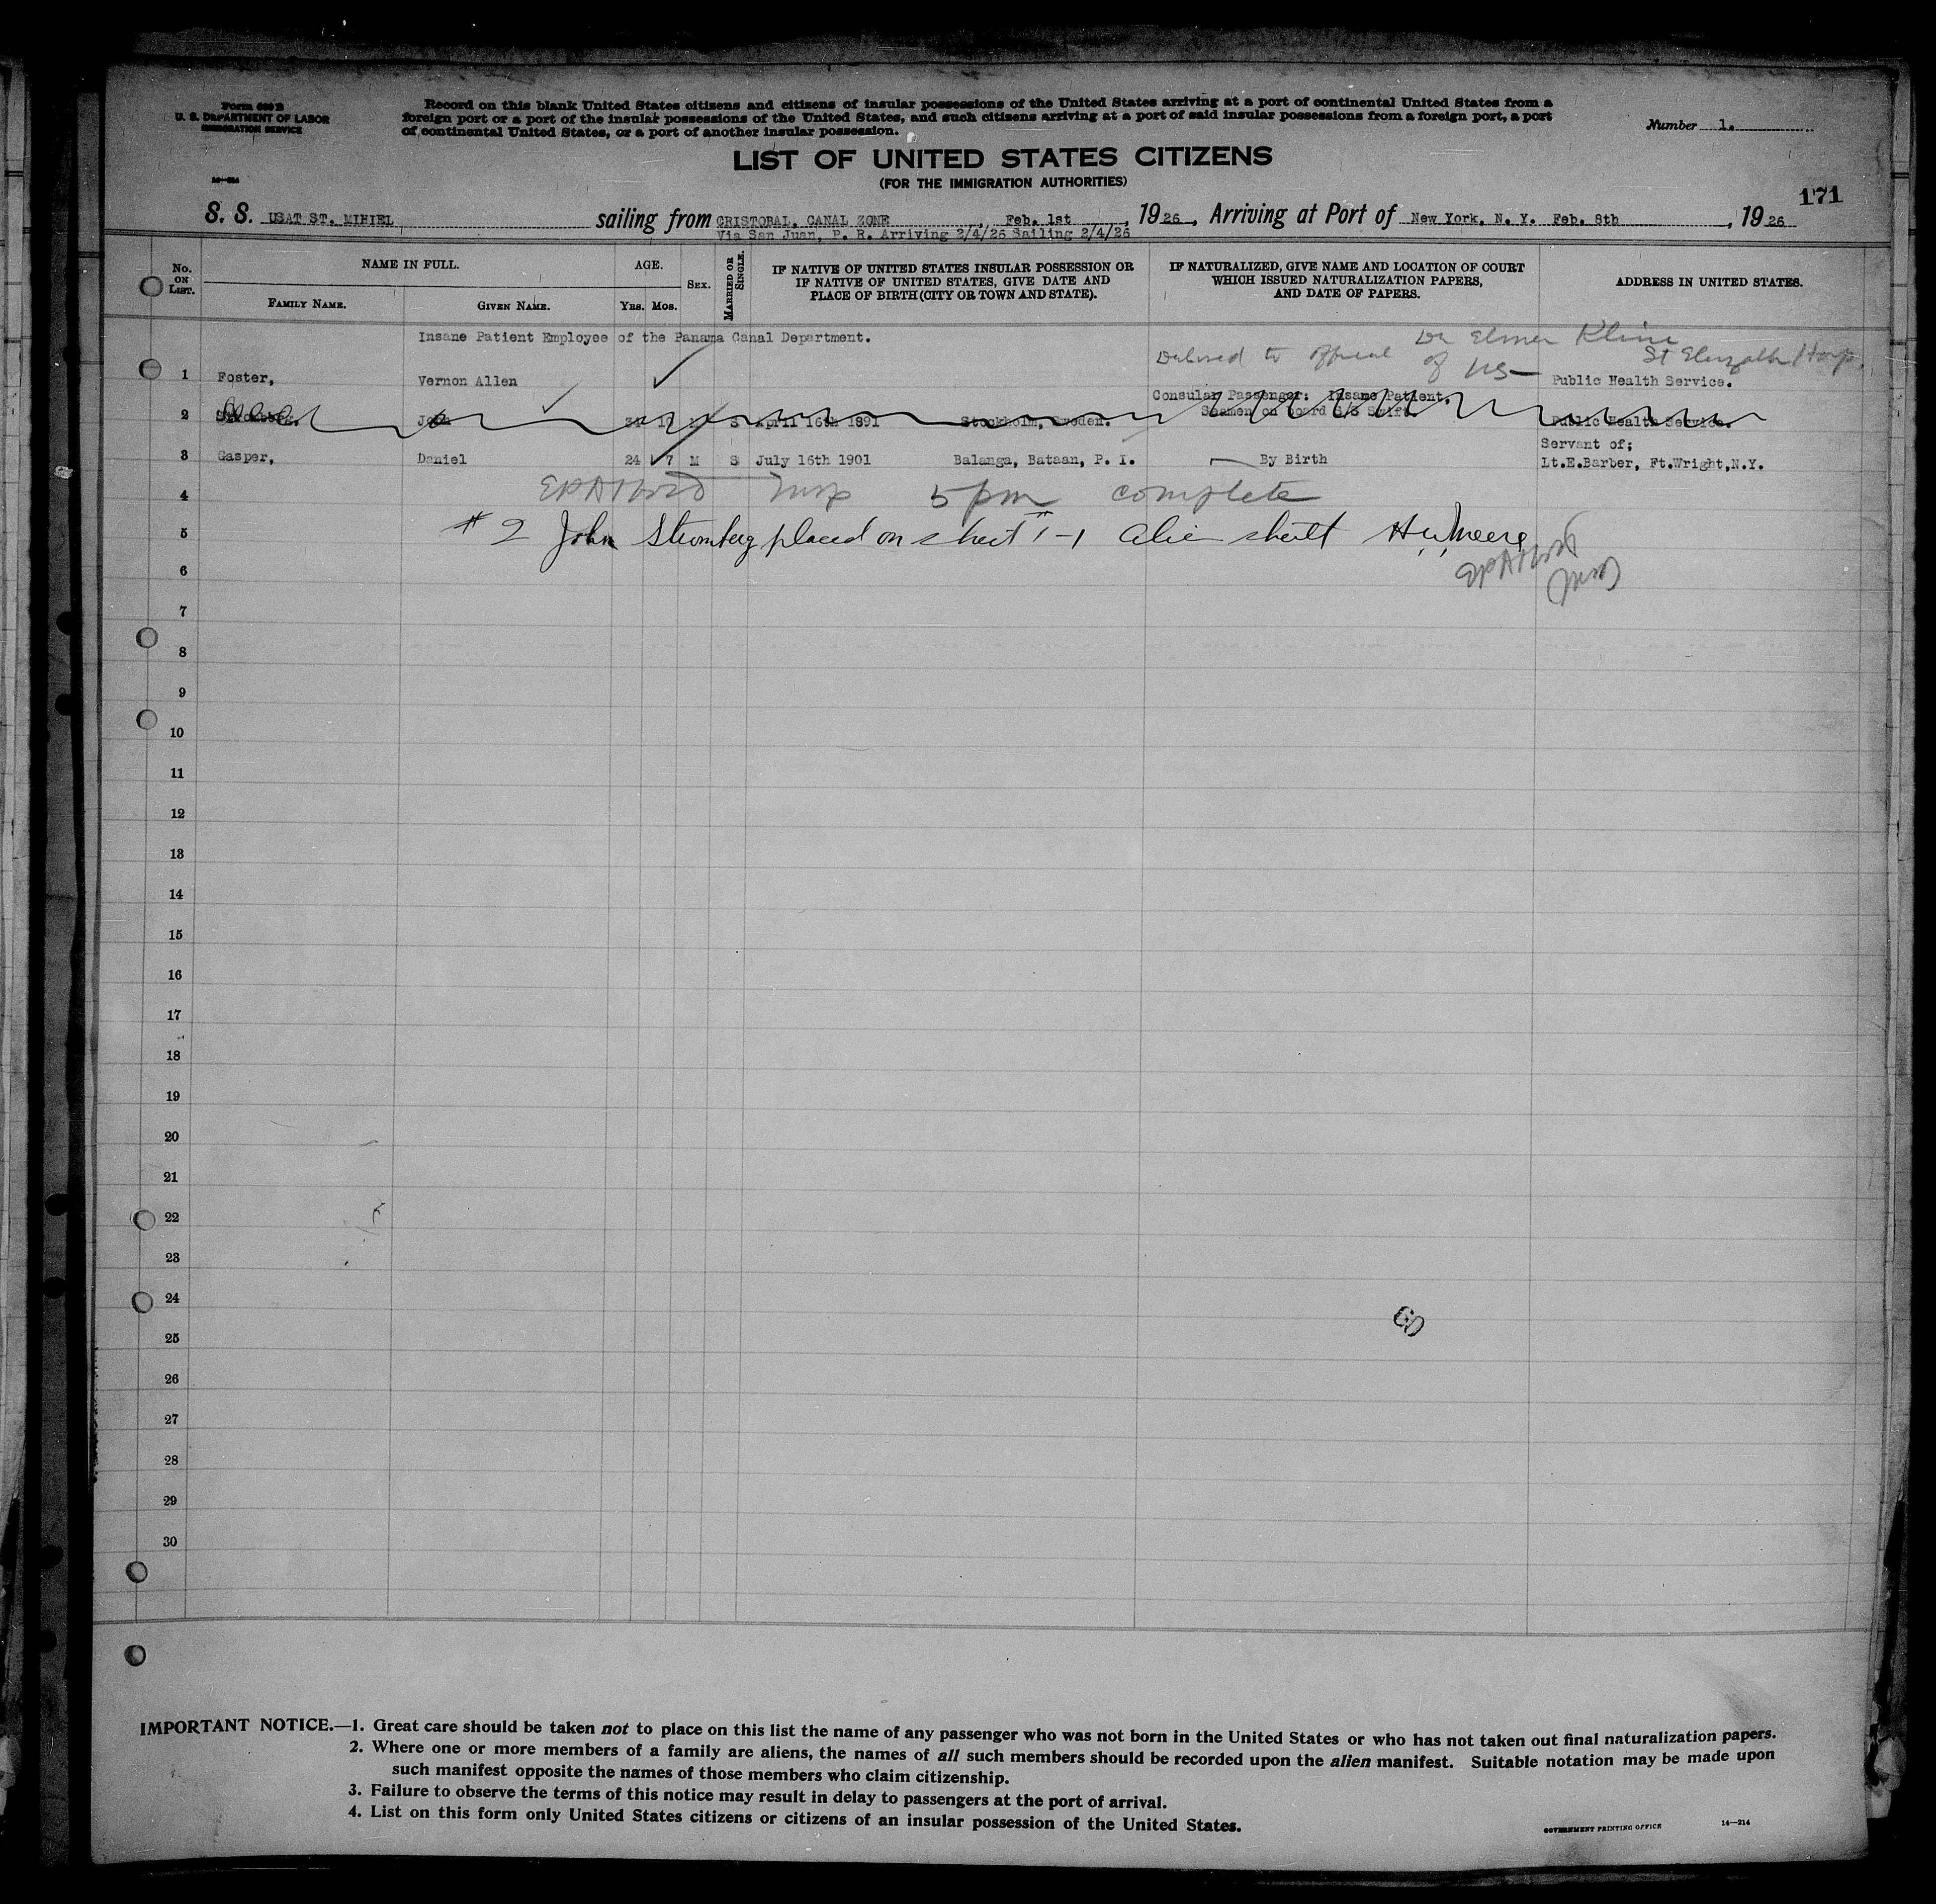 Form 630 B
U. S. DEPARTMENT OF LABOR
IMMIGRATION SERVICE
Record on this blank United States citizens and citizens of insular possessions of the United States arriving at a port of continental United States from a
foreign port or a port of the insular possessions of the United States, and such citizens arriving at a port of said insular possessions from a foreign port, a port
of continental United States, or a port of another insular possession.
Number 1.
LIST OF UNITED STATES CITIZENS
(FOR THE IMMIGRATION AUTHORITIES)
171
S. S. USAT ST. MIHIEL sailing from CRISTOBAL, CANAL ZONE, Feb. 1st, 1926, Arriving at Port of New York, N. Y. Feb. 8th, 1926
Via San Juan, P. R. Arriving 2/4/26 Sailing 2/4/26
No. ON LIST.
NAME IN FULL.
FAMILY NAME.
GIVEN NAME.
AGE.
Yrs. Mos.
SEX.
MARRIED OR SINGLE.
IF NATIVE OF UNITED STATES INSULAR POSSESSION OR
IF NATIVE OF UNITED STATES, GIVE DATE AND
PLACE OF BIRTH (CITY OR TOWN AND STATE).
IF NATURALIZED, GIVE NAME AND LOCATION OF COURT
WHICH ISSUED NATURALIZATION PAPERS,
AND DATE OF PAPERS.
ADDRESS IN UNITED STATES.
Insane Patient Employee of the Panama Canal Department.
Dr Elmer Klein
to official of US St Elizabeth Hosp.
1 Foster, Vernon Allen Public Health Service.
Consular Passenger: Insane Patient.
Seamen on board S/S Swift.
2 Stromberg, John 34 10 M S April 16th 1891 Stockholm, Sweden. Public Health Service.
Servant of;
3 Gasper, Daniel 24 7 M S July 16th 1901 Balanga, Bataan, P. I. By Birth Lt.E.Barber, Ft.Wright,N.Y.
4 5 pm complete
5 # 2 John Stromberg placed on sheet #1-1 alien sheet
6
7
8
9
10
11
12
13
14
15
16
17
18
19
20
21
22
23
24
25
26
27
28
29
30
60
IMPORTANT NOTICE.—1. Great care should be taken not to place on this list the name of any passenger who was not born in the United States or who has not taken out final naturalization papers.
2. Where one or more members of a family are aliens, the names of all such members should be recorded upon the alien manifest. Suitable notation may be made upon
such manifest opposite the names of those members who claim citizenship.
3. Failure to observe the terms of this notice may result in delay to passengers at the port of arrival.
4. List on this form only United States citizens or citizens of an insular possession of the United States.
GOVERNMENT PRINTING OFFICE 14—214